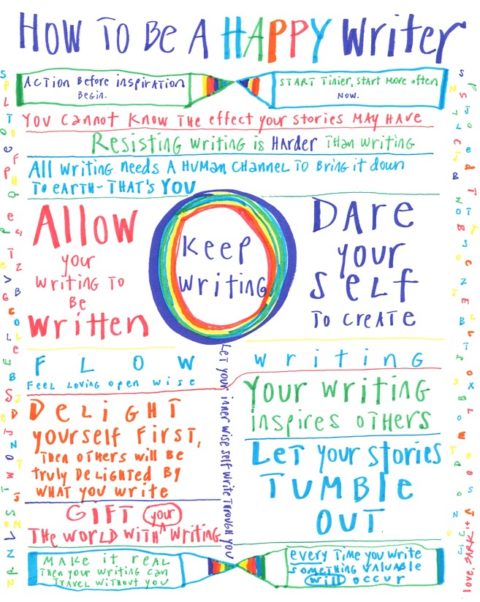 How To Be A HAPPY Writer
ACTION Before inspiration
Begin.
START Tinier, start more often
NOW.
YOU CANNOT KNOW THE EFFECT YOUR STORIES MAY HAVE
Resisting writing is HARDER THAN WRITING
ALL WRITING NEEDS A HUMAN CHANNEL TO BRING IT DOWN
TO EARTH-THAT'S YOU
ALLOW
your
WRITING TO
BE
WRITTEN
Keep
writing
DARE
your
SELF
TO CREATE
FLOW writing
FEEL LOVING OPEN WISE
LET YOUR INNER WISE SELF WRITE THROUGH YOU
DELIGHT
yourself FIRST,
THEN OTHERS WILL BE
TRULY DELIGHTED BY
WHAT YOU WRITE
GIFT your
THE WORLD WITH WRITING
YOUR WRITING
INSPIRES OTHERS
LET YOUR STORIES
TUMBLE
OUT
MAKE IT REAL
THEN YOUR WRITING CAN
TRAVEL WITHOUT YOU
EVERY TIME YOU WRITE
SOMETHING VALUABLE
WILL OCCUR
love, SARK